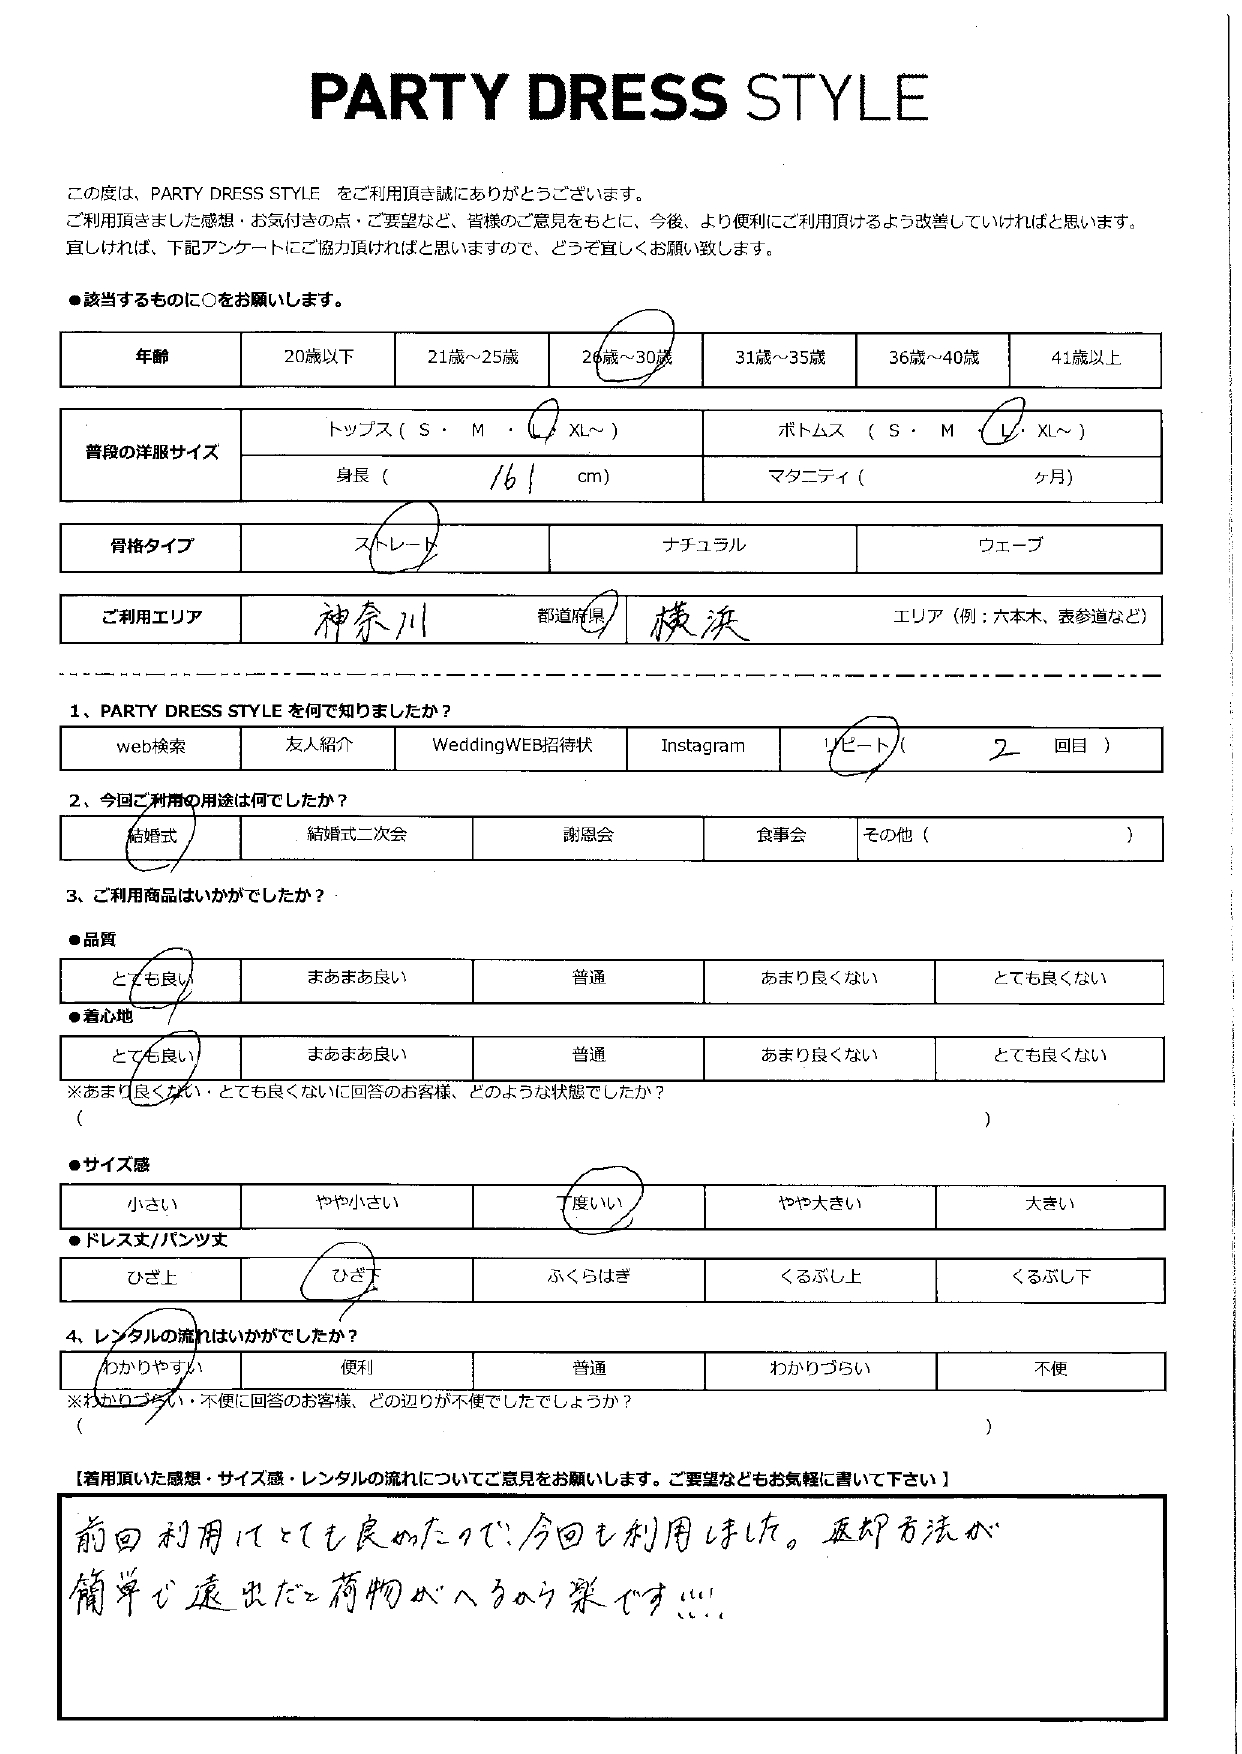 PARTY DRESS STYLE
この度は、PARTY DRESS STYLE をご利用頂き誠にありがとうございます。
ご利用頂きました感想・お気付きの点・ご要望など、皆様のご意見をもとに、今後、より便利にご利用頂けるよう改善していければと思います。
宜しければ、下記アンケートにご協力頂ければと思いますので、どうぞ宜しくお願い致します。
●該当するものに○をお願いします。
年齢 20歳以下 21歳～25歳 26歳～30歳 31歳～35歳 36歳～40歳 41歳以上
普段の洋服サイズ トップス ( S ・ M ・ L ・ XL～ ) ボトムス ( S ・ M ・ L ・ XL～ )
身長 ( 161 cm) マタニティ ( ヶ月)
骨格タイプ ストレート ナチュラル ウェーブ
ご利用エリア 神奈川 都道府県 横浜 エリア（例：六本木、表参道など）
1、PARTY DRESS STYLE を何で知りましたか？
web検索 友人紹介 WeddingWEB招待状 Instagram リピート ( 2 回目 )
2、今回ご利用の用途は何でしたか？
結婚式 結婚式二次会 謝恩会 食事会 その他 ( )
3、ご利用商品はいかがでしたか？
●品質
とても良い まあまあ良い 普通 あまり良くない とても良くない
●着心地
とても良い まあまあ良い 普通 あまり良くない とても良くない
※あまり良くない・とても良くないに回答のお客様、どのような状態でしたか？
( )
●サイズ感
小さい やや小さい 丁度いい やや大きい 大きい
●ドレス丈/パンツ丈
ひざ上 ひざ下 ふくらはぎ くるぶし上 くるぶし下
4、レンタルの流れはいかがでしたか？
わかりやすい 便利 普通 わかりづらい 不便
※わかりづらい・不便に回答のお客様、どの辺りが不便でしたでしょうか？
( )
【着用頂いた感想・サイズ感・レンタルの流れについてご意見をお願いします。ご要望などもお気軽に書いて下さい】
前回利用してとても良かったので、今回も利用しました。返却方法が
簡単で遠出だと荷物がへるから楽です!!!!